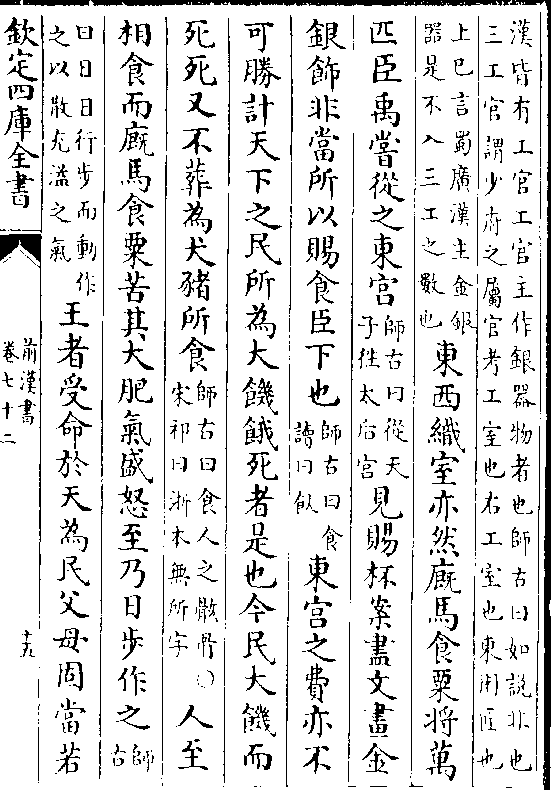 漢皆有工官工官主作銀器物者也師古曰如說非也
三工官謂少府之屬官考工室也右工室也東園匠也
上巳言蜀廣漢主金銀
器是不入三工之數也
東西織室亦然廐馬食粟將萬
匹臣禹嘗從之東宫
師古曰從天
子往太后宫
見賜杯案畫文畫金
銀飾非當所以賜食臣下也
師古曰食
讀曰飤
東宫之費亦不
可勝計天下之民所為大饑餓死者是也今民大饑而
死死又不葬為犬豬所食
師古曰食人之骸骨○
宋祁曰浙本無所字
人至
相食而廐馬食粟苦其大肥氣盛怒至乃日步作之
師古
曰日日行步而動作
之以散充溢之氣
王者受命於天為民父母固當若
欽定四庫全書
前漢書
卷七十二
十九